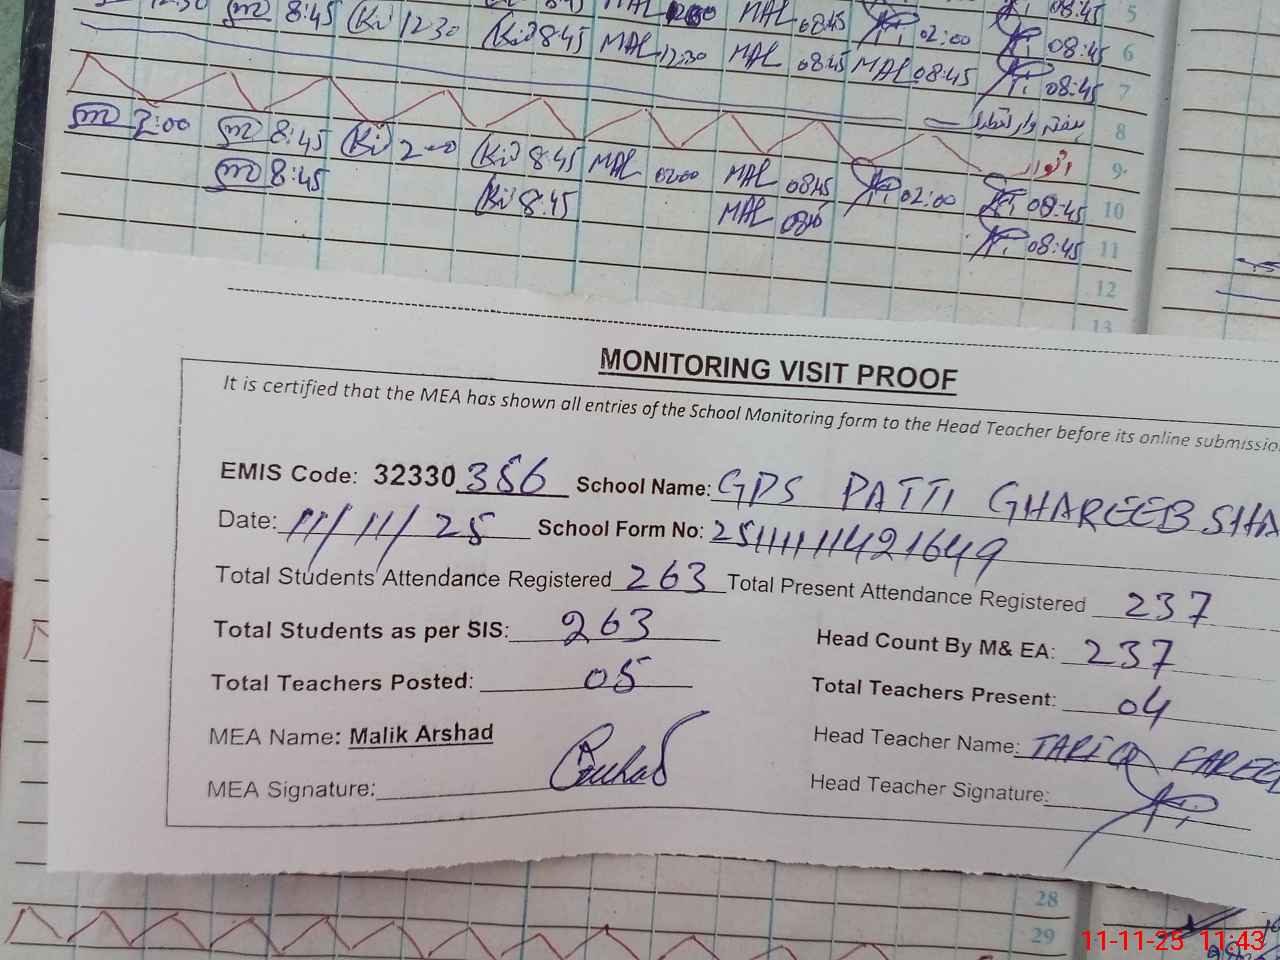 12:30 m 8:45 Ki 12:30 8:45 MAL 1230 MAL 0845 02:00 08:45 5
Ki 8:45 MAL 12:30 MAL 0845 MAL 08:45 08:45 6
08:45 7
8
m 2:00 m 8:45 Ki 2:00 Ki 8:45 MAL 0200 MAL 0845 02:00 08:45 اتوار 9
m 8:45 Ki 8:45 MAL 08:45 10
08:45 11
12
13
MONITORING VISIT PROOF
It is certified that the MEA has shown all entries of the School Monitoring form to the Head Teacher before its online submissio
EMIS Code: 32330 356 School Name: GPS PATTI GHAREEB SHA
Date: 11/11/25 School Form No: 25111111421649
Total Students Attendance Registered 263 Total Present Attendance Registered 237
Total Students as per SIS: 263 Head Count By M& EA: 237
Total Teachers Posted: 05 Total Teachers Present: 04
MEA Name: Malik Arshad Head Teacher Name: TARIQ FAREE
MEA Signature: Head Teacher Signature:
28
29
11-11-25 11:43